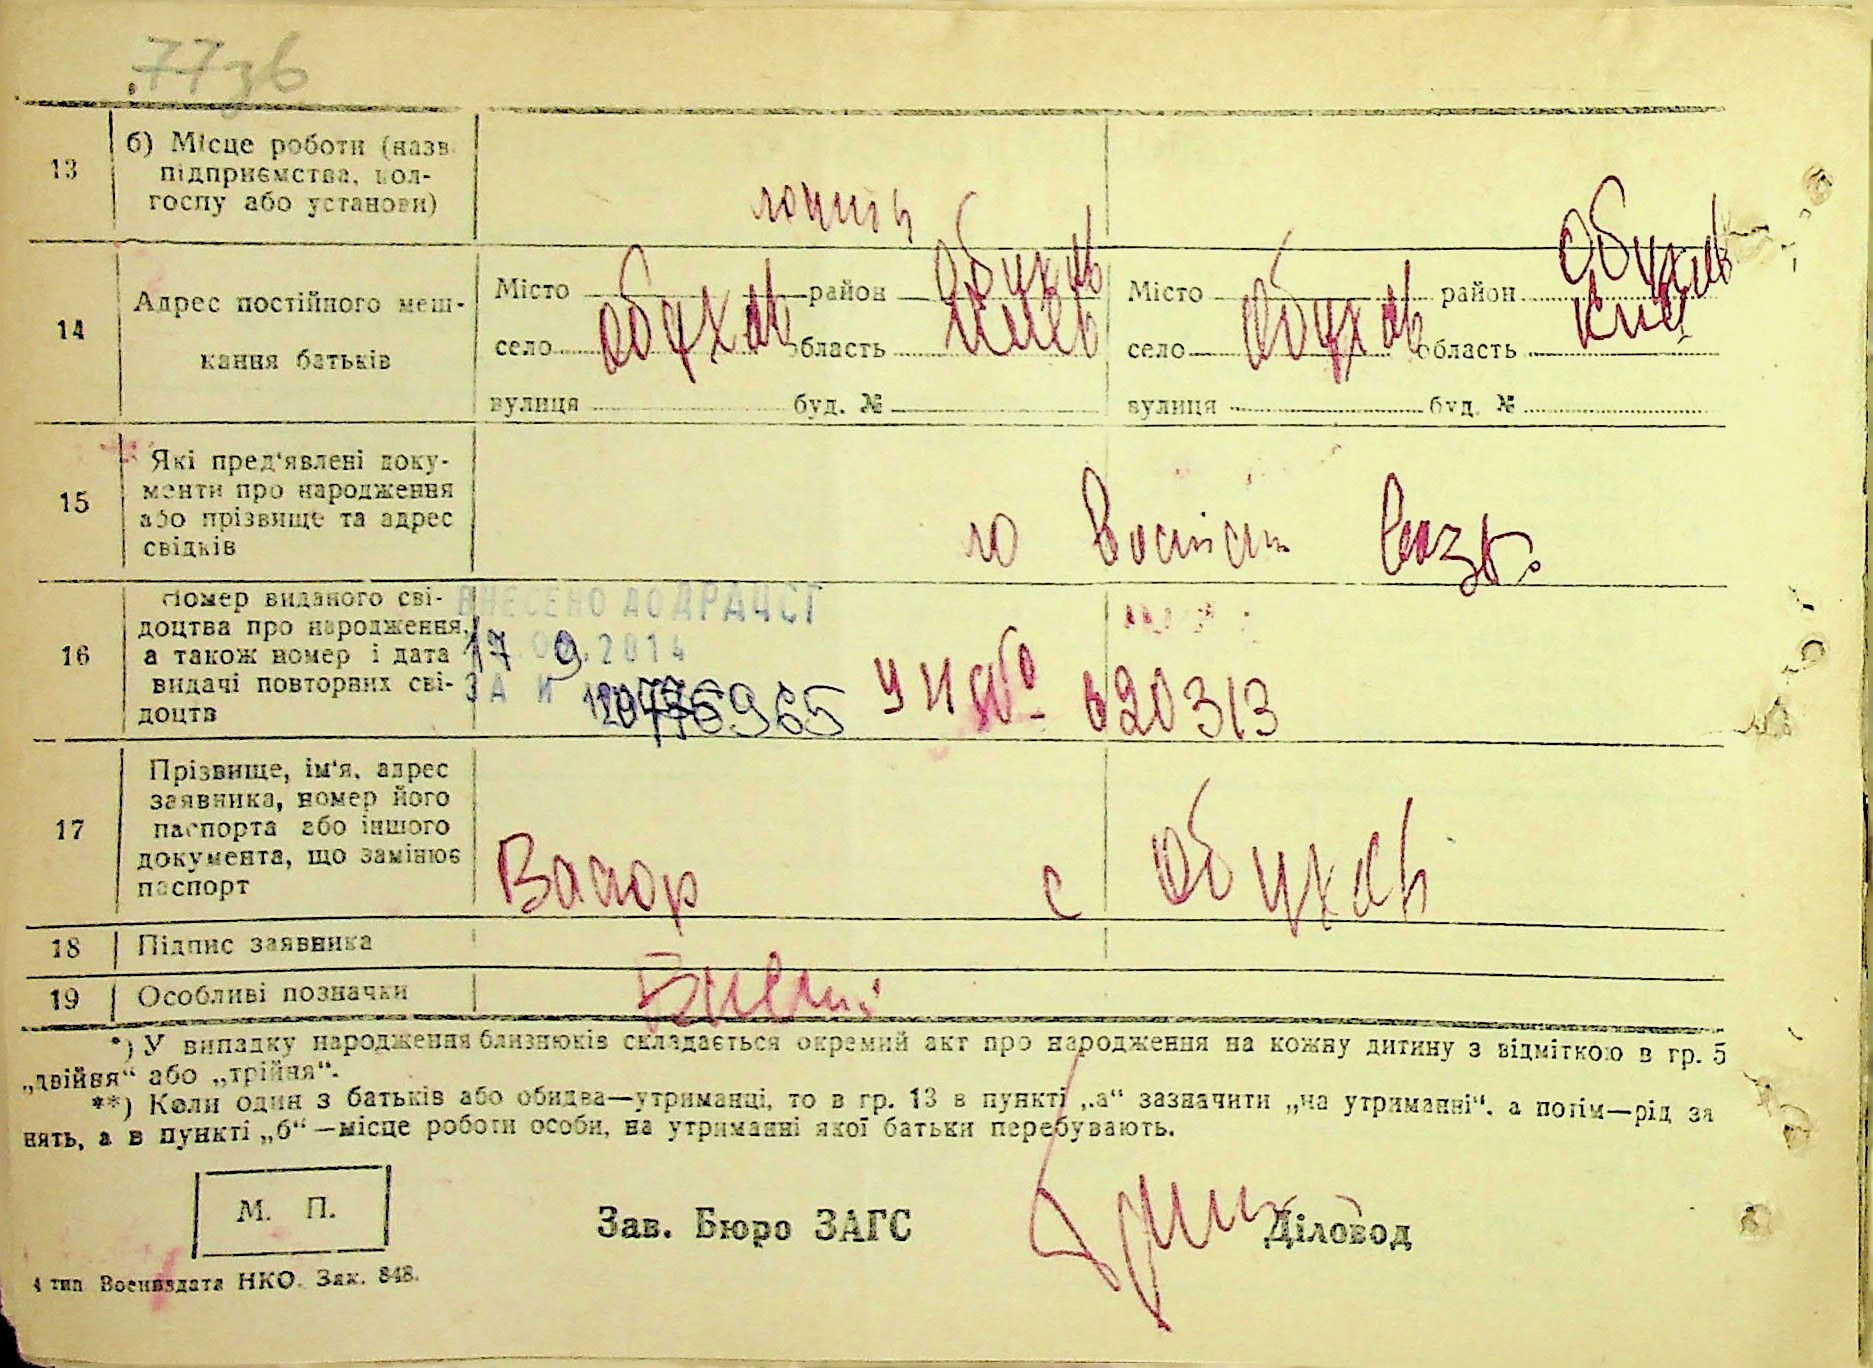 77зв
13
б) Місце роботи (назв
підприємства, кол-
госпу або установи)
14
Адрес постійного меш-
кання батьків
Місто район Обухів
село Обухів область Киев
вулиця буд. №
Місто район Обухів
село Обухів область Киев
вулиця буд. №
15
Які пред'явлені доку-
менти про народження
або прізвище та адрес
свідків
16
Номер виданого сві-
доцтва про народження,
а також номер і дата
видачі повторних сві-
доцтв
ВНЕСЕНО ДО ДРАЦСГ
17 09.2014
ЗА №
620313
17
Прізвище, ім'я, адрес
заявника, номер його
паспорта або іншого
документа, що замінює
паспорт
с Обухів
18 Підпис заявника
19 Особливі позначки
*) У випадку народження близнюків складається окремий акт про народження на кожну дитину з відміткою в гр. 5
„двійня“ або „трійня“.
**) Коли один з батьків або обидва—утриманці, то в гр. 13 в пункті „а“ зазначити „на утриманні“, а потім—рід за
нять, а в пункті „б“—місце роботи особи, на утриманні якої батьки перебувають.
М. П.
Зав. Бюро ЗАГС
Діловод
4 тип Воениздата НКО. Зак. 848.